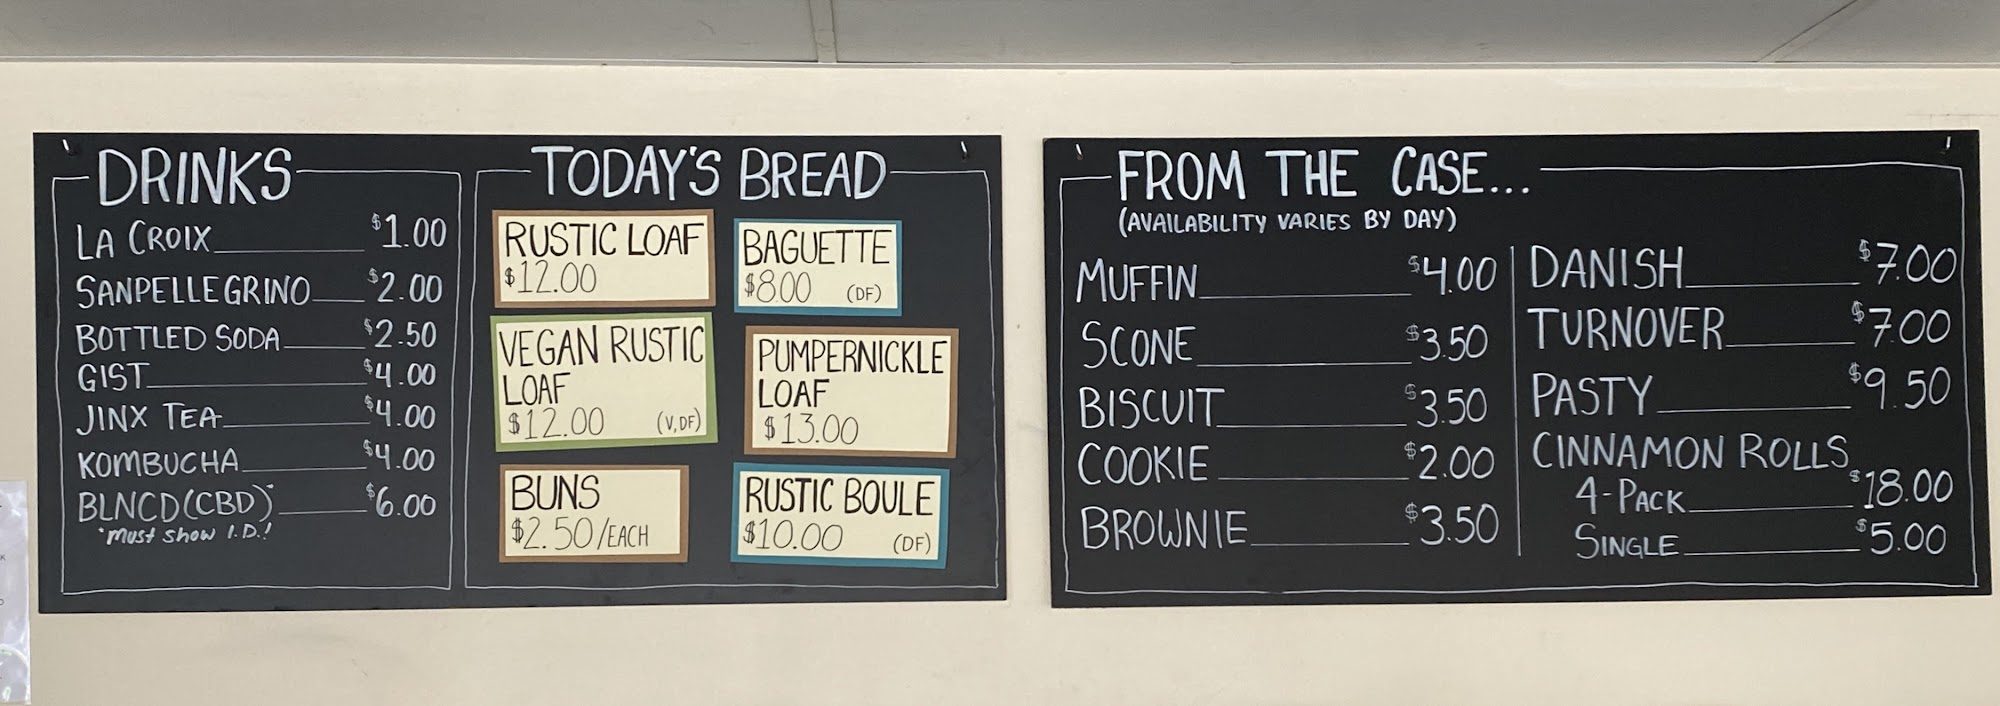 DRINKS
LA CROIX $1.00
SANPELLEGRINO $2.00
BOTTLED SODA $2.50
GIST $4.00
JINX TEA $4.00
KOMBUCHA $4.00
BLNCD (CBD)* $6.00
*Must show I.D.!
TODAY'S BREAD
RUSTIC LOAF
$12.00
BAGUETTE
$8.00 (DF)
VEGAN RUSTIC
LOAF
$12.00 (V, DF)
PUMPERNICKLE
LOAF
$13.00
BUNS
$2.50/EACH
RUSTIC BOULE
$10.00 (DF)
FROM THE CASE...
(AVAILABILITY VARIES BY DAY)
MUFFIN $4.00
SCONE $3.50
BISCUIT $3.50
COOKIE $2.00
BROWNIE $3.50
DANISH $7.00
TURNOVER $7.00
PASTY $9.50
CINNAMON ROLLS
4-PACK $18.00
SINGLE $5.00